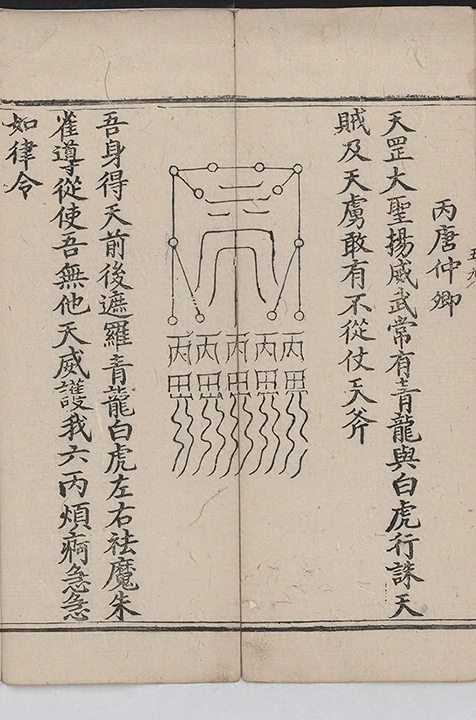 丙唐仲卿
天罡大聖揚威武常有青龍與白虎行誅天
賊及天虜敢有不從仗天斧
丙丙丙丙丙
吾身得天前後遮羅青龍白虎左右祛魔朱
雀導從使吾無他天威護我六丙煩痾急急
如律令